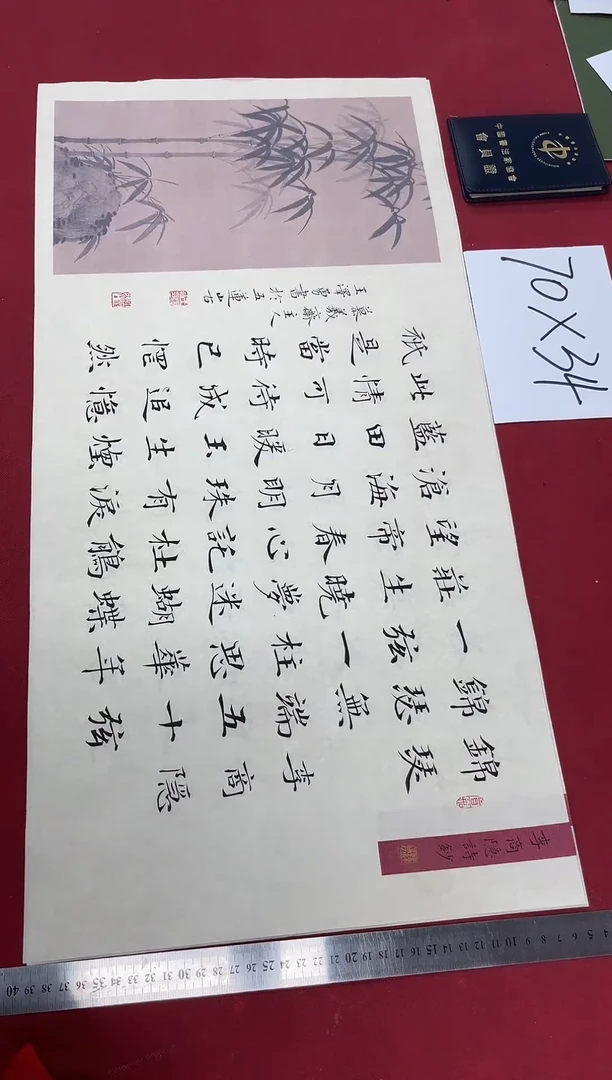 李商隱詩鈔
錦瑟李商隱
錦瑟無端五十弦
一弦一柱思華年
莊生曉夢迷蝴蝶
望帝春心託杜鵑
滄海月明珠有淚
藍田日暖玉生煙
此情可待成追憶
祇是當時已惘然
慕羲齋主人
王澤勇書於五蓮山古
中國書法家協會
會員證
70X34
4 5 6 7 8 9 10 11 12 13 14 15 16 17 18 19 20 21 22 23 24 25 26 27 28 29 30 31 32 33 34 35 36 37 38 39 40